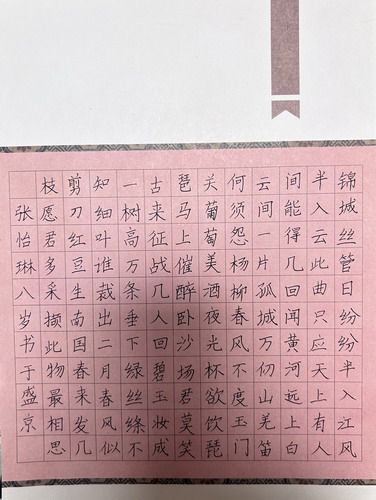 锦城丝管日纷纷半入江风
半入云此曲只应天上有人
间能得几回闻黄河远上白
云间一片孤城万仞山羌笛
何须怨杨柳春风不度玉门
关葡萄美酒夜光杯欲饮琵
琶马上催醉卧沙场君莫笑
古来征战几人回碧玉妆成
一树高万条垂下绿丝绦不
知细叶谁裁出二月春风似
剪刀红豆生南国春来发几
枝愿君多采撷此物最相思
张怡琳八岁书于盛京